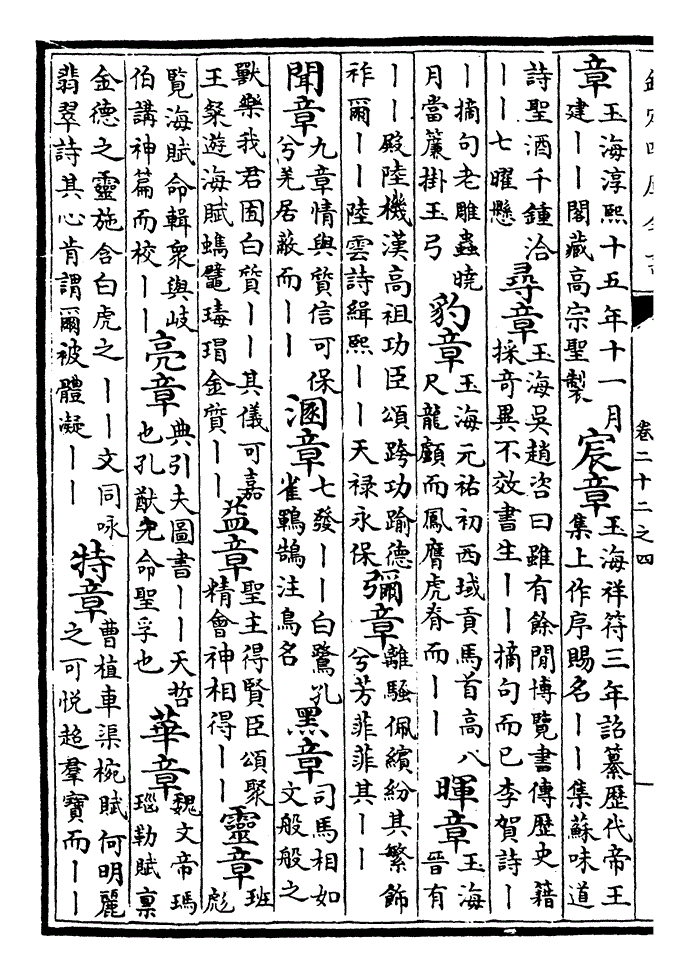 卷二十二之四
章玉海淳熙十五年十一月建——閣藏高宗聖製宸章玉海祥符三年詔纂歷代帝王集上作序賜名——集蘇味道
詩聖酒千鍾洽——七曜懸尋章玉海吳趙咨曰雖有餘閒博覽書傳歷史籍採奇異不效書生——摘句而已李賀詩—
—摘句老雕蟲曉月當簾掛玉弓豹章玉海元祐初西域貢馬首高八尺龍顱而鳳膺虎脊而——暉章玉海晉有
——殿陸機漢高祖功臣頌跨功踰德祚爾——陸雲詩緝熙——天祿永保彌章離騷佩繽紛其繁飾兮芳菲菲其——
聞章九章情與質信可保兮羌居蔽而——溷章七發——白鷺孔雀鶤鵠注鳥名黑章司馬相如文般般之
獸樂我君囿白質——其儀可嘉王粲遊海賦蟕蠵瑇瑁金質——益章聖主得賢臣頌聚精會神相得——靈章班彪
覽海賦命輯衆與岐伯講神篇而校——亮章典引夫圖書——天哲也孔猷先命聖孚也華章魏文帝瑪瑙勒賦禀
金德之靈施含白虎之——文同咏翡翠詩其心肯謂爾被體凝——特章曹植車渠椀賦何明麗之可悦超羣寶而——